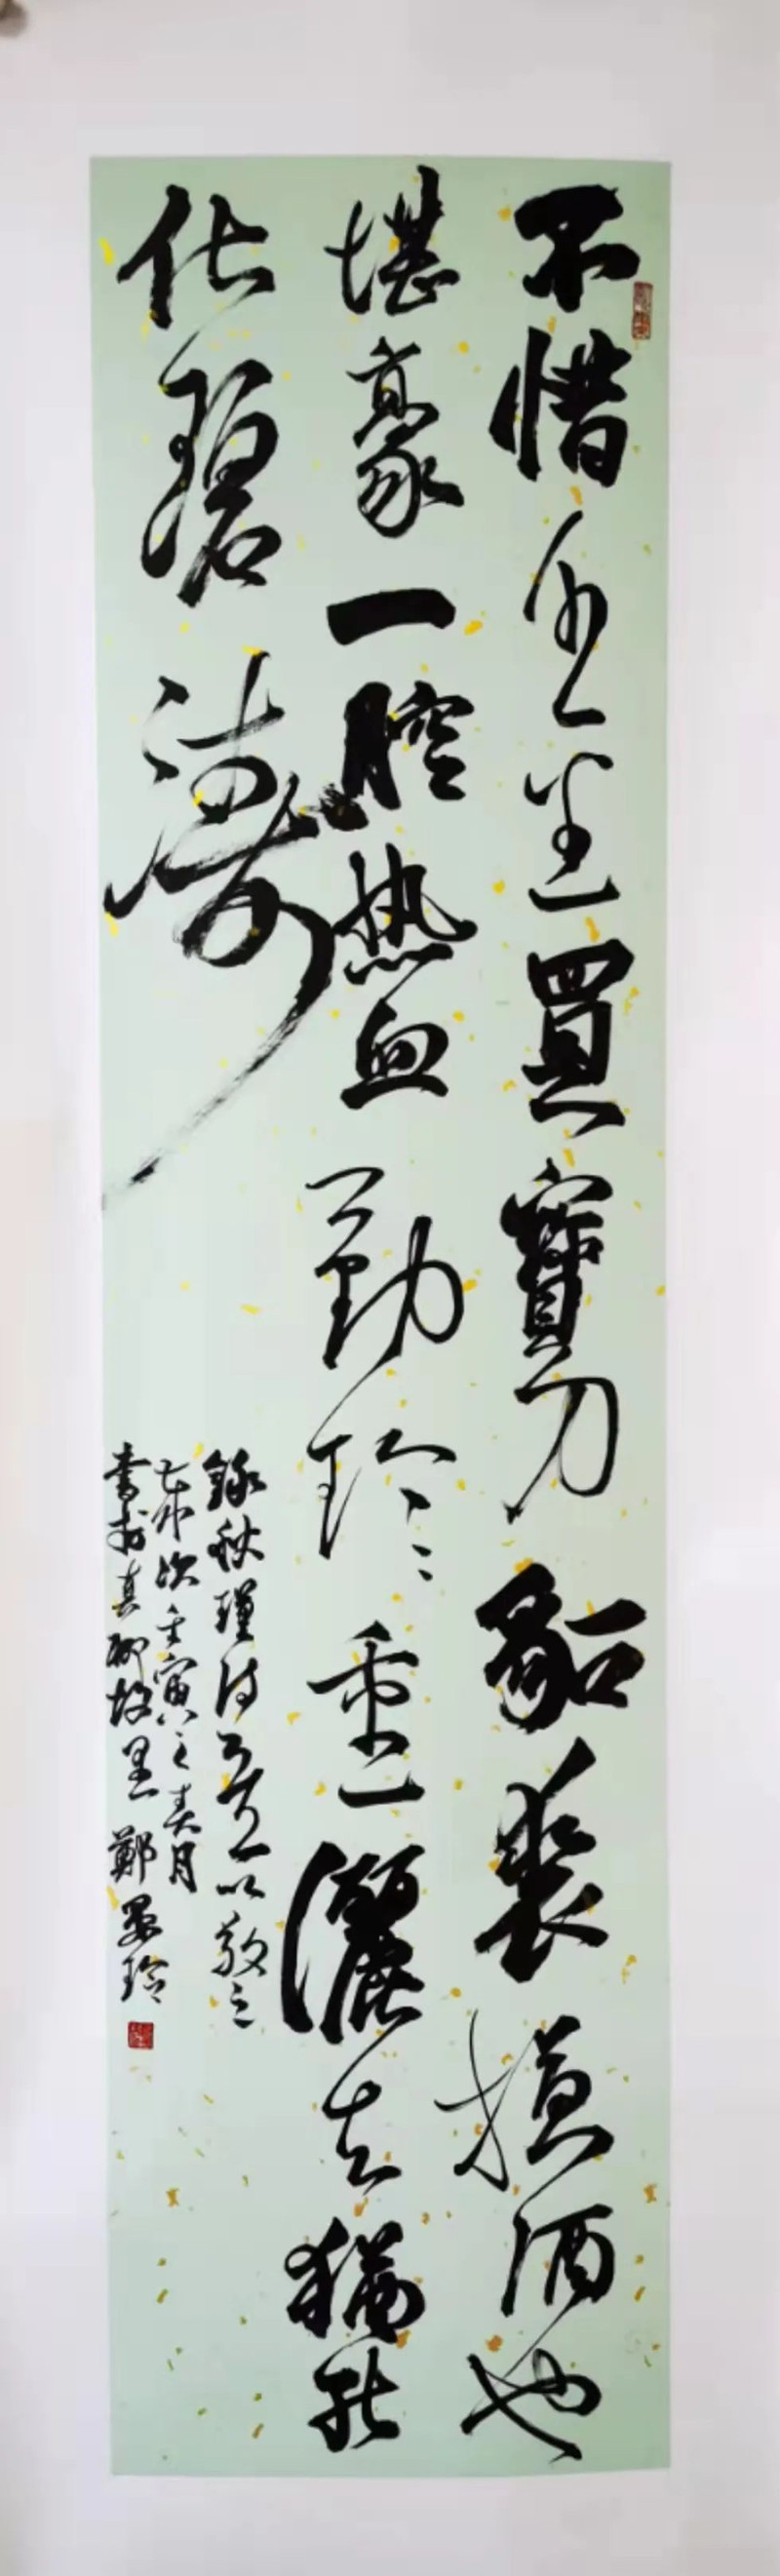 不惜千金買寶刀貂裘換酒也
堪豪一腔热血勤珍重灑去猶能
化碧濤
錄秋瑾詩以敬之
歲次壬寅之春月
書於故里鄭玲